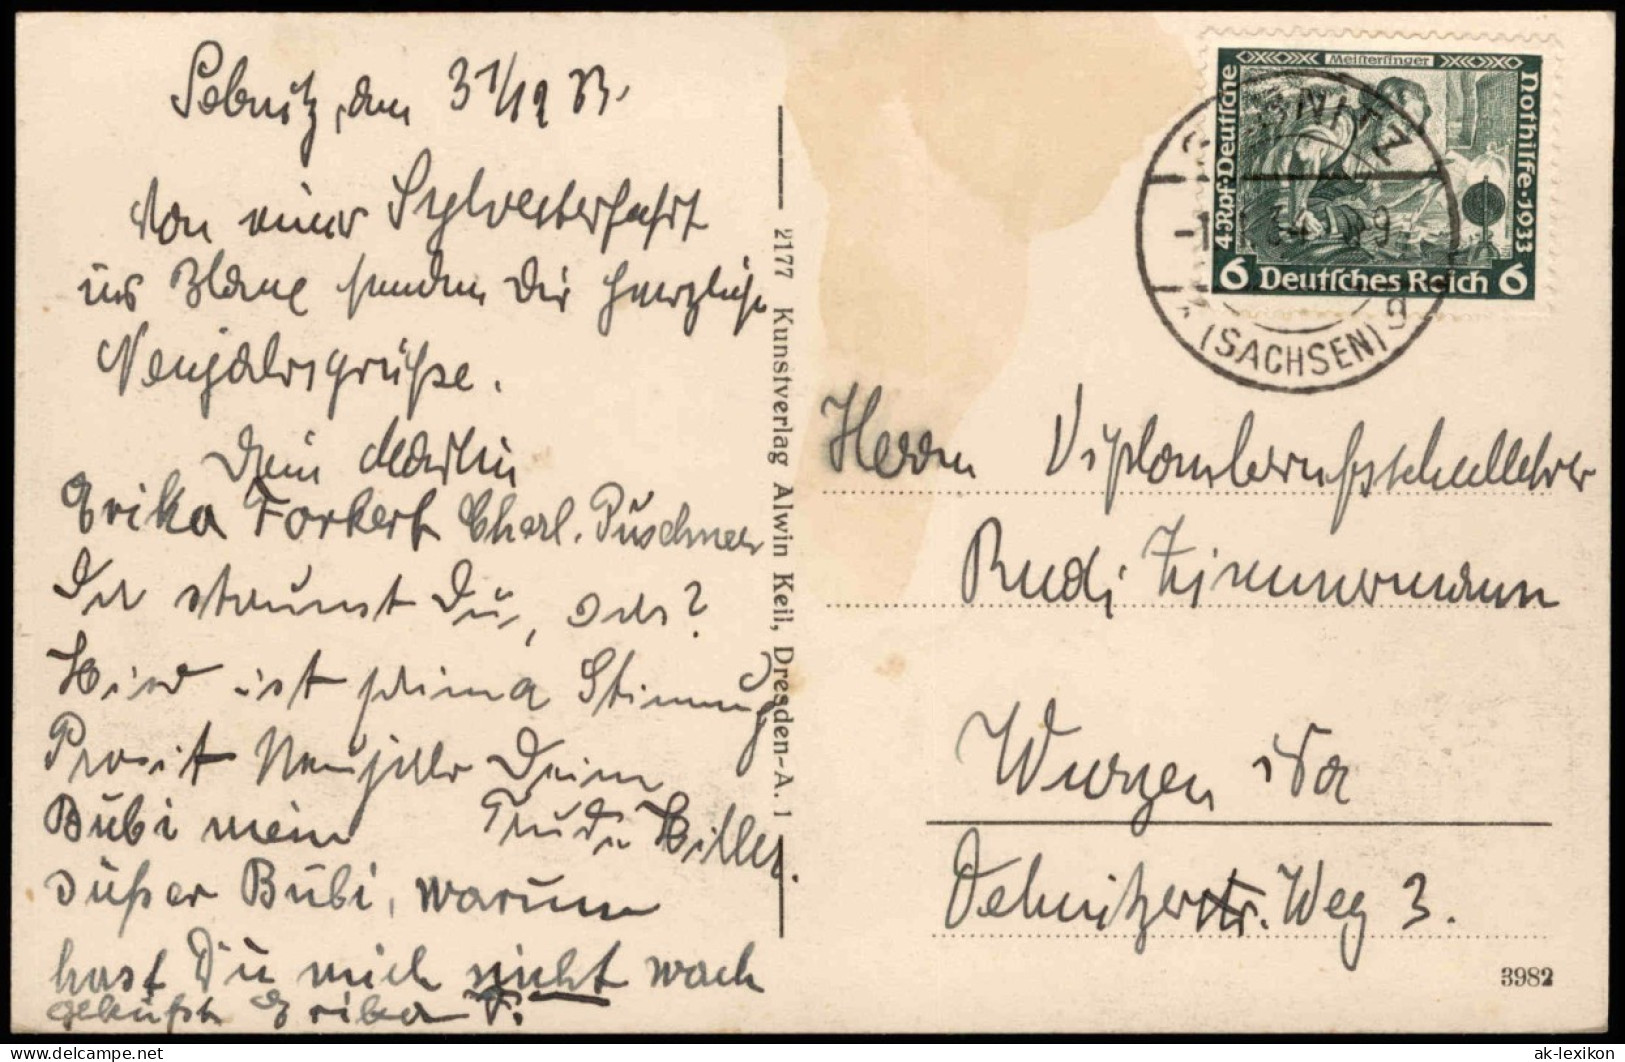 Sebnitz, den 31/12 33.
Von einer Sylvesterfahrt
ins Blaue senden Dir herzliche
Neujahrsgrüße.
Dein Martin
Erika Forkert Charl. Püschner
Da staunst Du, oder?
Hier ist prima Stimmung
Prosit Neujahr Deine
Trude Hiller.
Bubi mein
süßer Bubi, warum
hast Du mich nicht wach
geküßt Erika F.
2177 Kunstverlag Alwin Keil, Dresden-A. 1
Meistersinger
4 Rpf. Deutsche
Nothilfe·1933
6 Deutsches Reich 6
SEBNITZ
(SACHSEN)
Herrn Diplomberufsschullehrer
Rudi Zimmermann
Wurzen i/Sa
Oelnitzerstr. Weg 3.
3982
ak-lexikon
delcampe.net